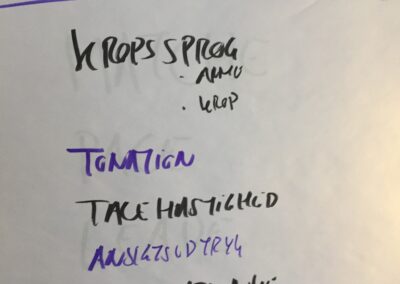 KROPSSPROG
· ARME
· KROP
TONATION
TALEHASTIGHED
ANSIGTSUDTRYK